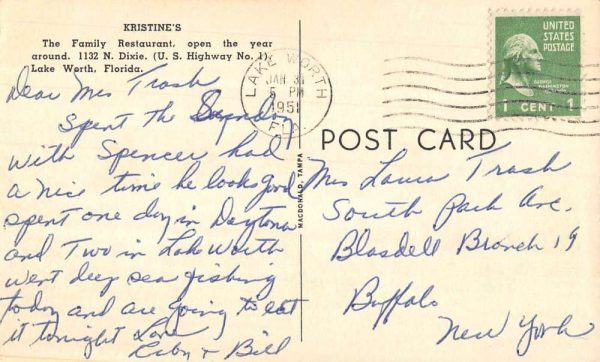 KRISTINE'S
The Family Restaurant, open the year
around. 1132 N. Dixie. (U. S. Highway No. 1)
Lake Worth, Florida.
Dear Mrs Trash
Spent the
with Spencer had
a nice time he looks good
spent one day in Daytona
and Two in Lake Worth
went deep sea fishing
today and are going to eat
it tonight Love
Ruby + Bill
LAKE WORTH
JAN 31
5 PM
1951
FLA
UNITED
STATES
POSTAGE
GEORGE
WASHINGTON
1 CENT 1
POST CARD
MACDONALD, TAMPA
Mrs Laura Trash
South Park Ave.
Blasdell Branch 19
Buffalo
New York